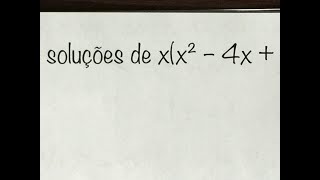 soluções de x(x² - 4x +